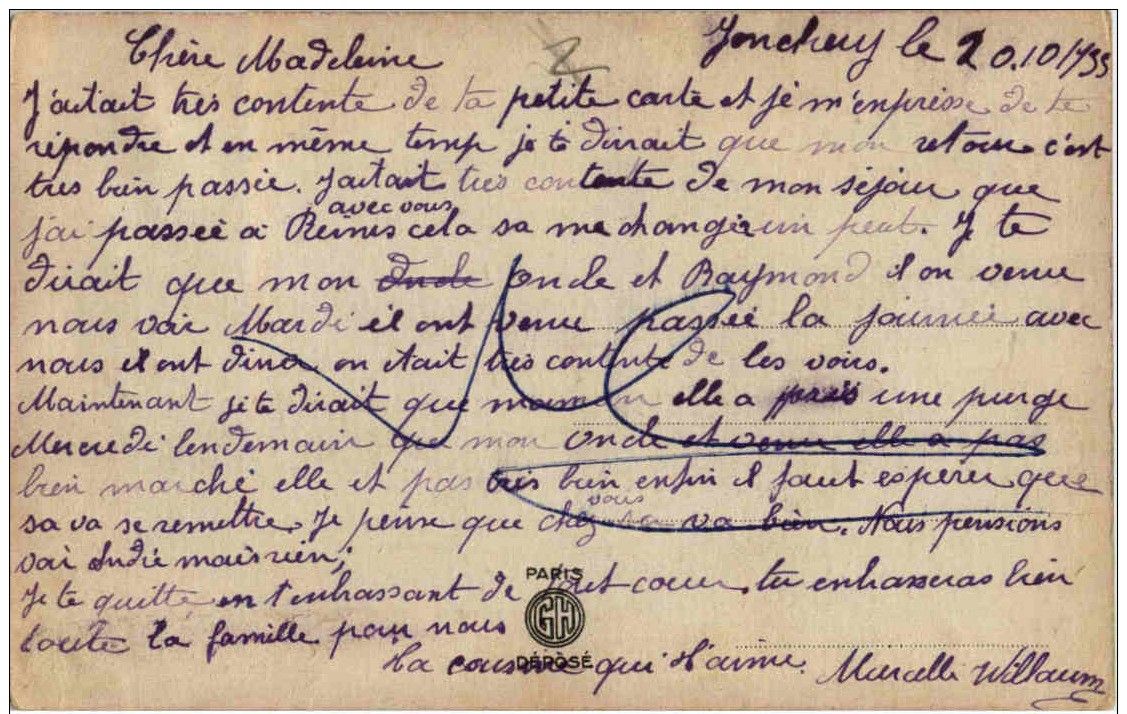 Jonchery le 20.10/1935
Chère Madeleine
J'aitait très contente de ta petite carte et je m'enpresse de te
répondre et en même temp je te dirait que mon retour c'est
tres bien passée. J'aitait très contente de mon séjour que
j'ai passée à Reims avec vous cela sa me changer un peut. Je te
dirait que mon Oncle Oncle et Raymond il on venue
nous voir Mardi il ont venue passée la journée avec
nous il ont diner on était très contente de les voirs.
Maintenant je te dirait que maman elle a pris une purge
Mercredi lendemain que mon oncle et venue elle a pas
bien marché elle et pas très bien enfin il faut esperer que
sa va se remettre. Je pense que chez vous sa va bien. Nous pensions
voir André mais rien;
Je te quitte en t'enbrassant de tout coeur. tu enbrasseras bien
toute la famille pour nous
PARIS
GH
DÉPOSÉ
ta cousine qui t'aime.
Marcelle Willaume